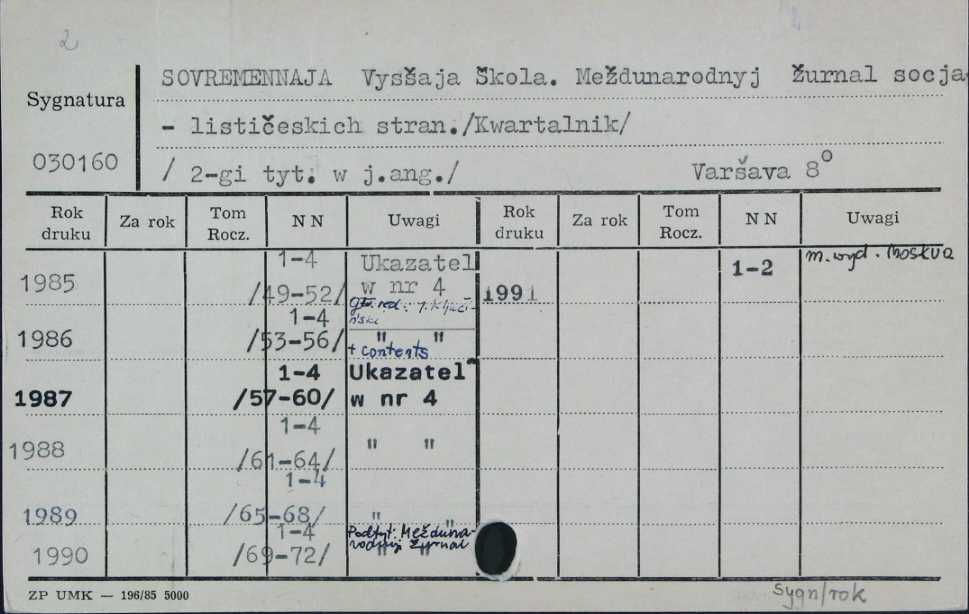 2
SOVREMENNAJA Vysšaja Škola. Meždunarodnyj Žurnal socja-
Sygnatura
- lističeskich stran./Kwartalnik/
030160
/ 2-gi tyt. w j.ang./ Varšava 8°
Rok druku Za rok Tom Rocz. N N Uwagi Rok druku Za rok Tom Rocz. N N Uwagi
1985 1-4 /49-52/ Ukazatel w nr 4
Gł. red.:
1986 1-4 /53-56/ " "
+ contents
1987 1-4 /57-60/ Ukazatel w nr 4
1988 1-4 /61-64/ " "
1989 1-4 /65-68/ " "
1990 1-4 /69-72/ " "
Podtyt: Meždunarodnyj Žurnal
1991 1-2 m. wyd. Moskva
ZP UMK — 196/85 5000
Sygn/rok